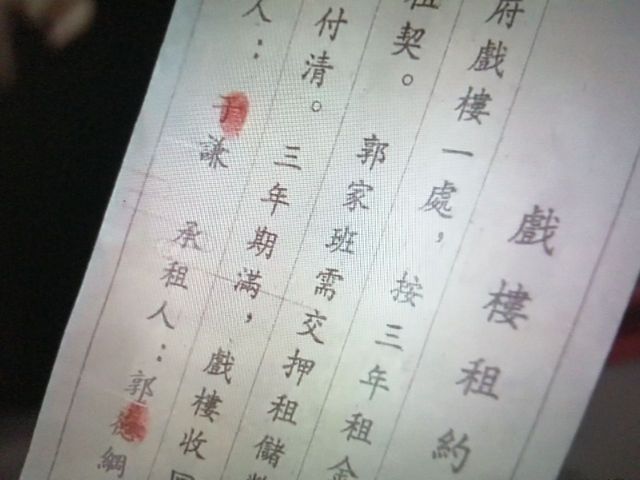 戲樓租約
府戲樓一處，按三年租金
租契。郭家班需交押租儲
付清。三年期滿，戲樓收
人：于謙 承租人：郭德綱